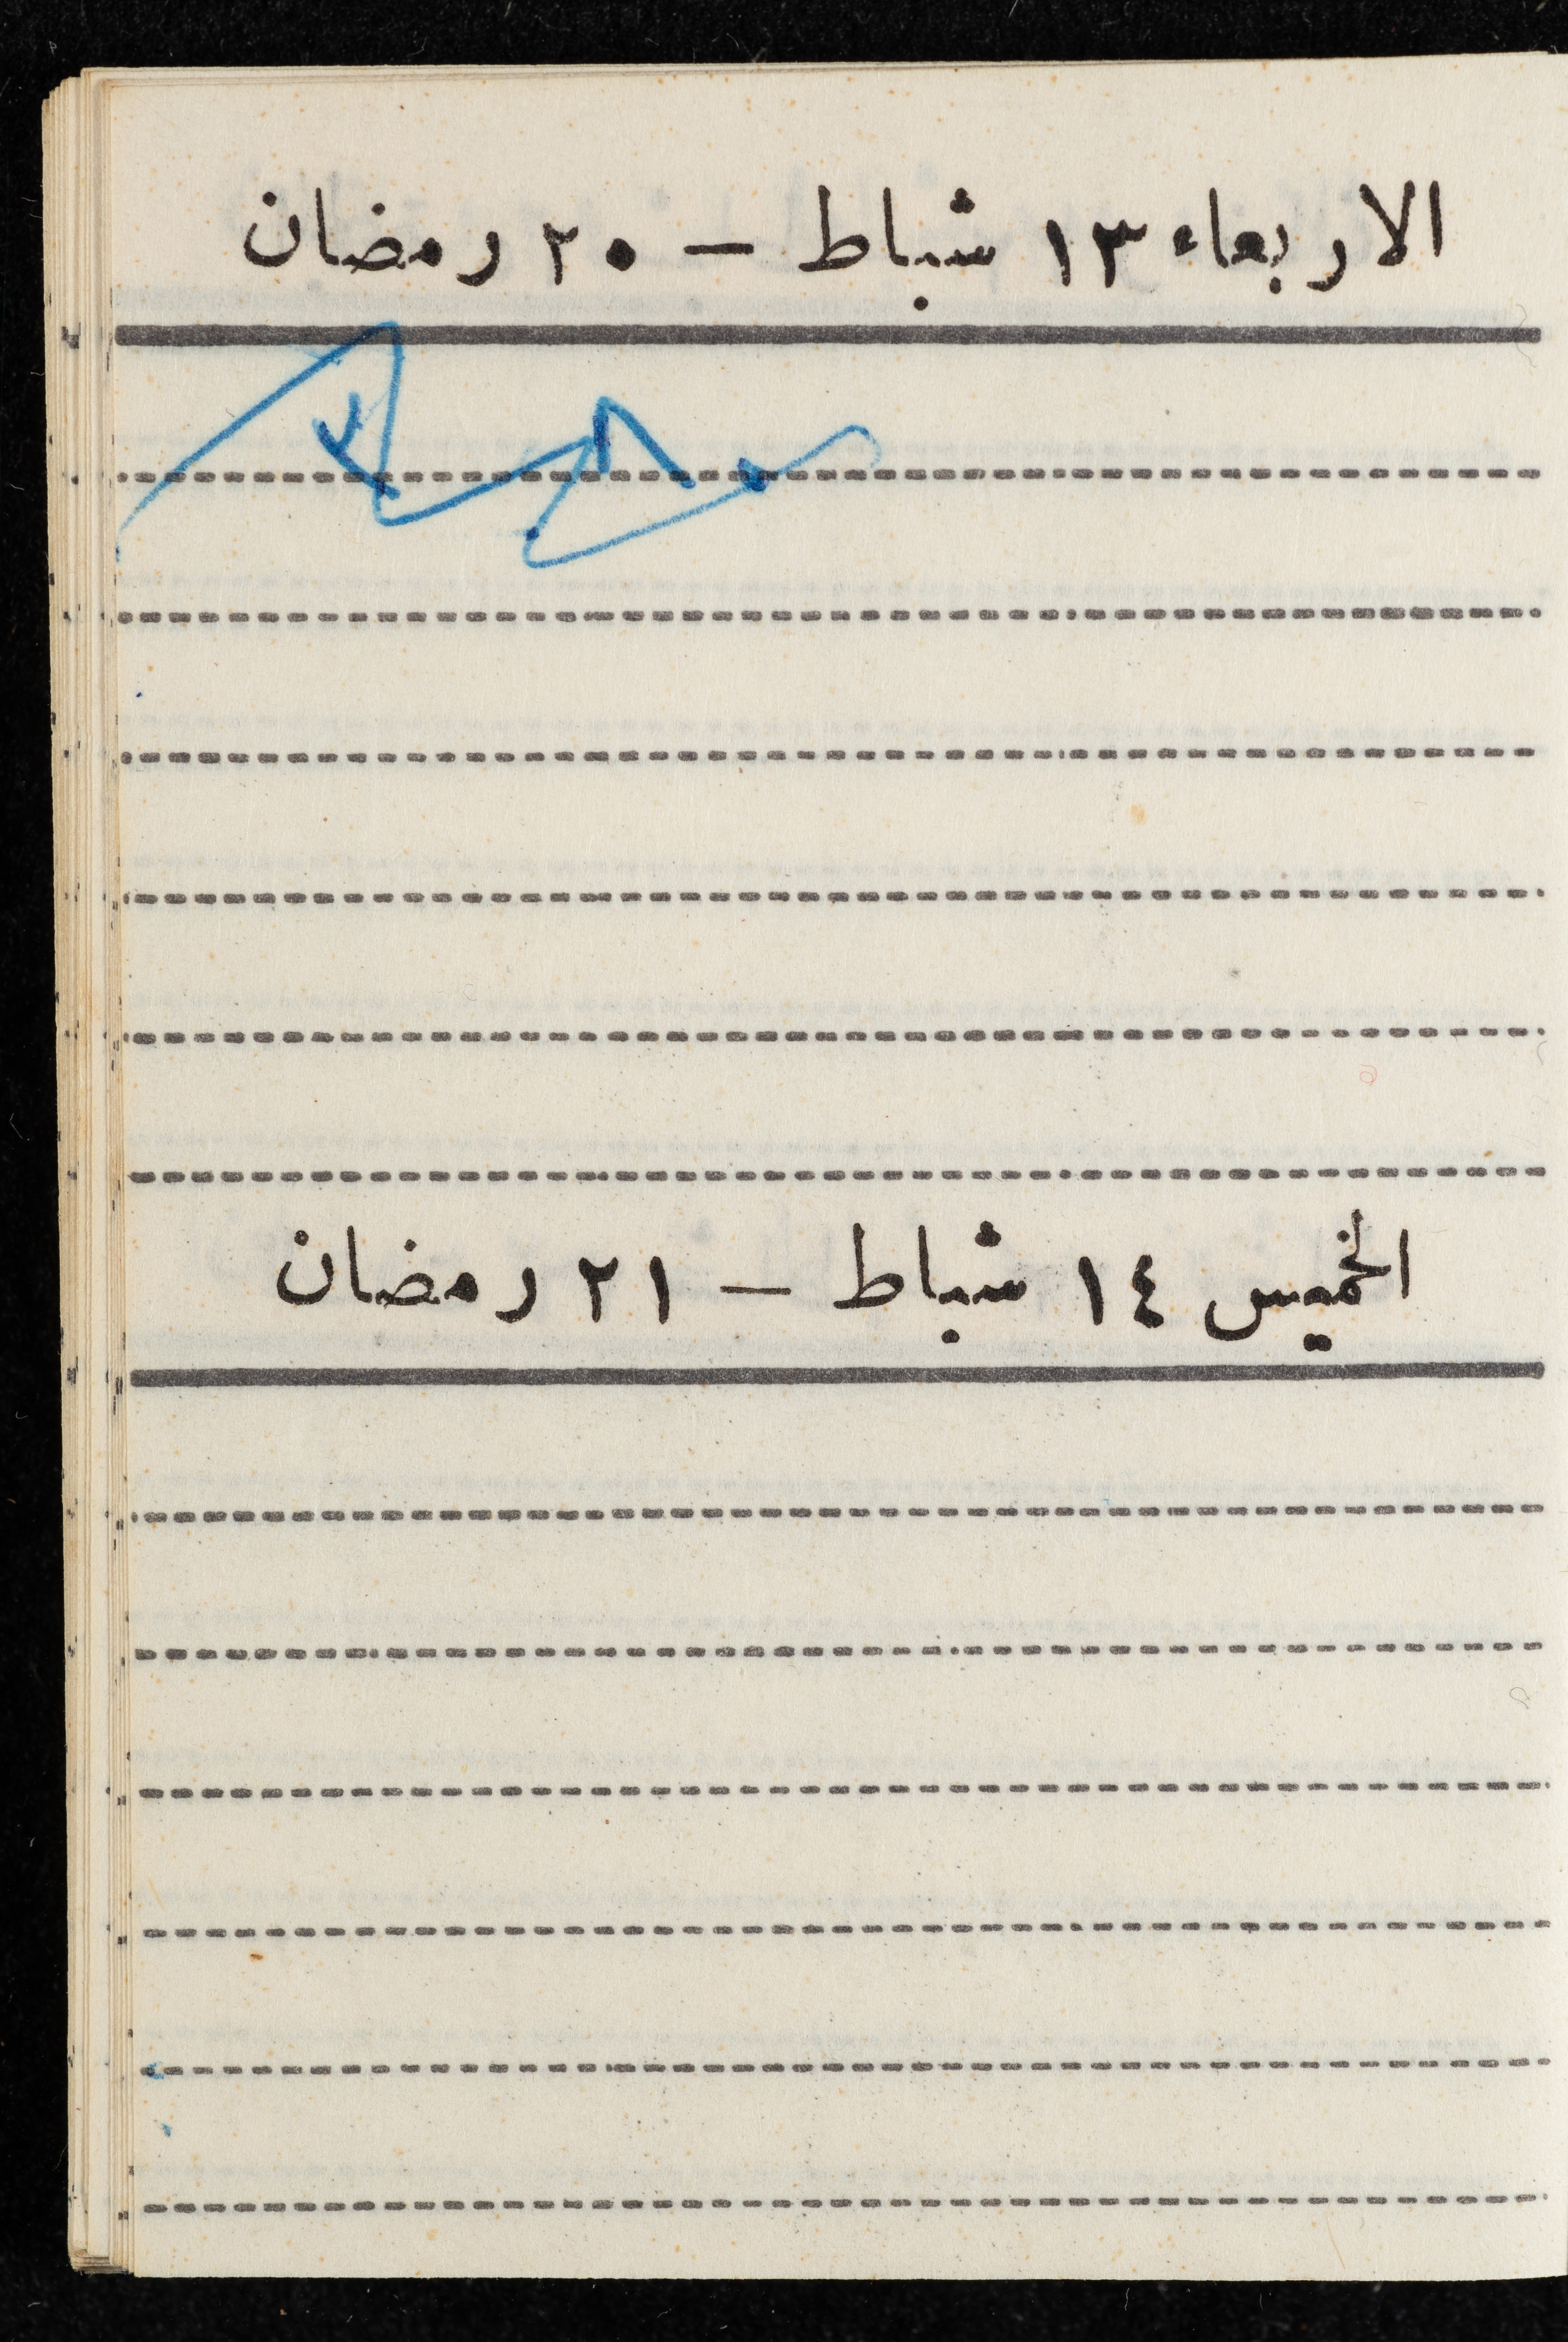 الاربعاء ١٣ شباط – ٢٠ رمضان
الخميس ١٤ شباط – ٢١ رمضان